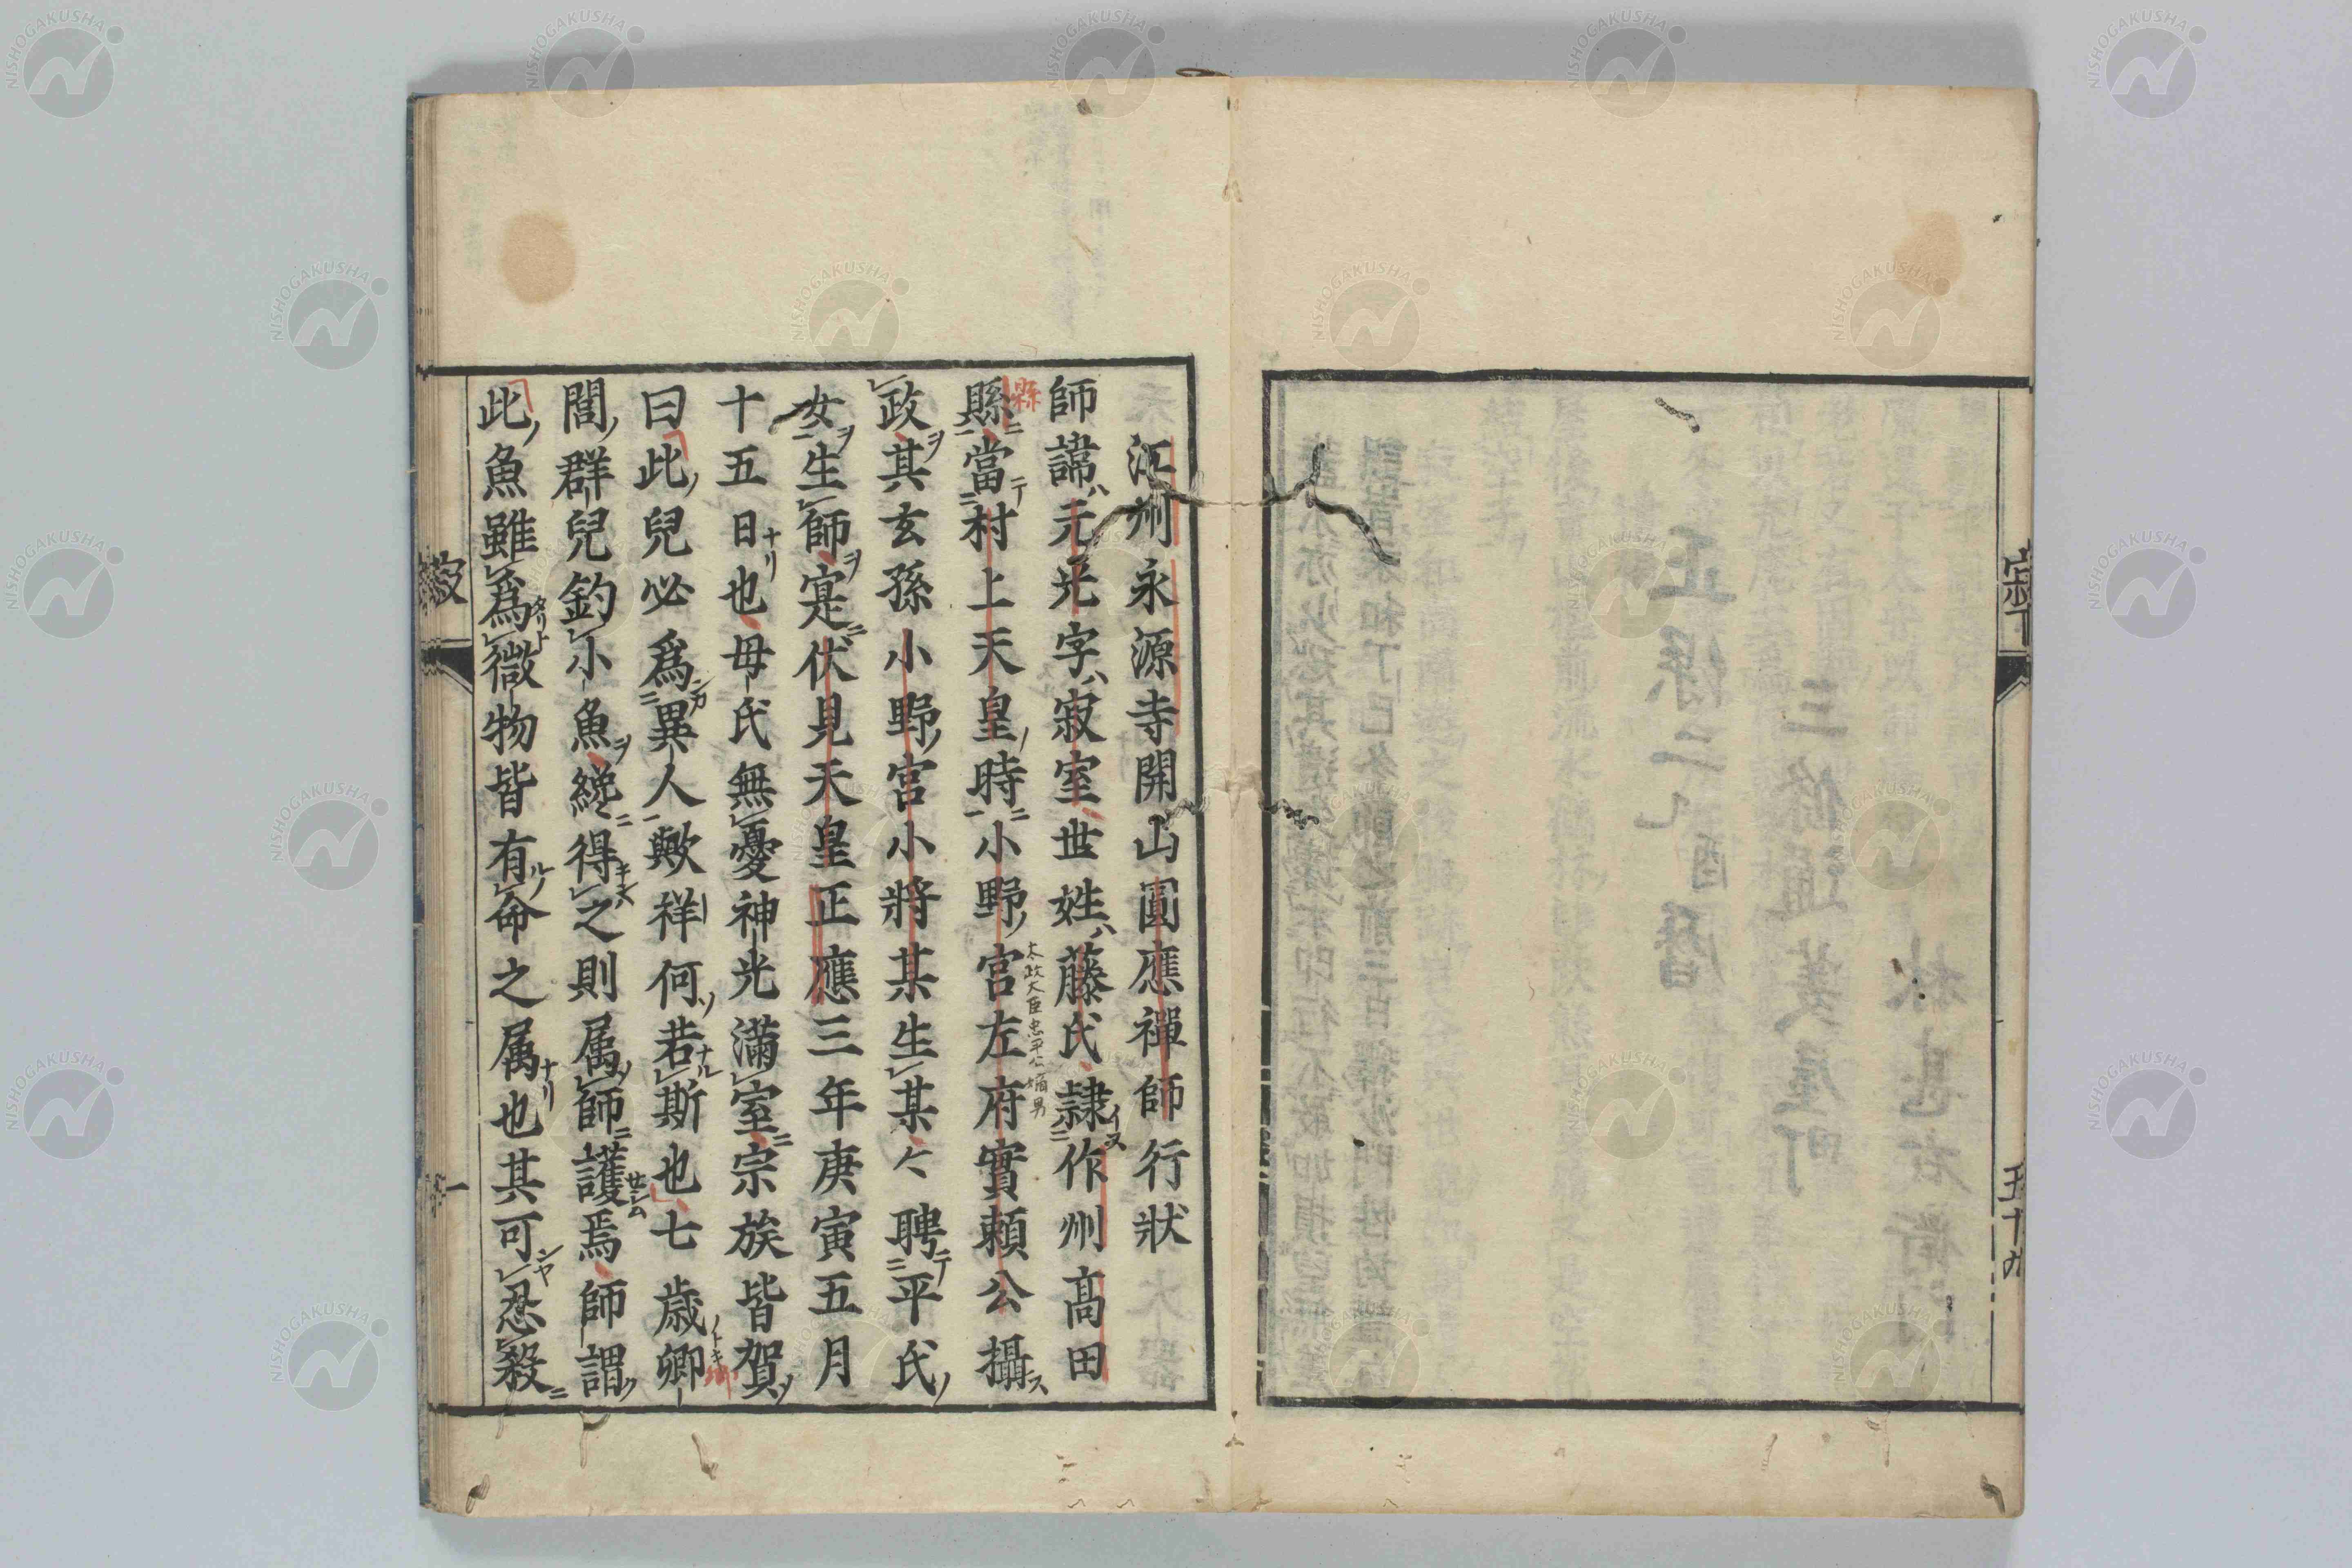 寂下
五十九
江州永源寺開山圓應禪師行狀
師諱元光字寂室世姓藤氏隷作州高田
縣當村上天皇時小野宮左府實頼公攝
太政大臣忠平公嫡男
政其玄孫小野宮小將某生某々聘平氏
女生師寔伏見天皇正應三年庚寅五月
十五日也母氏無憂神光滿室宗族皆賀
曰此兒必爲異人歟祥何若斯也七歳鄉
閭群兒釣小魚纔得之則属師護焉師謂
此魚雖爲微物皆有命之属也其可忍殺
縣
NISHOGAKUSHA